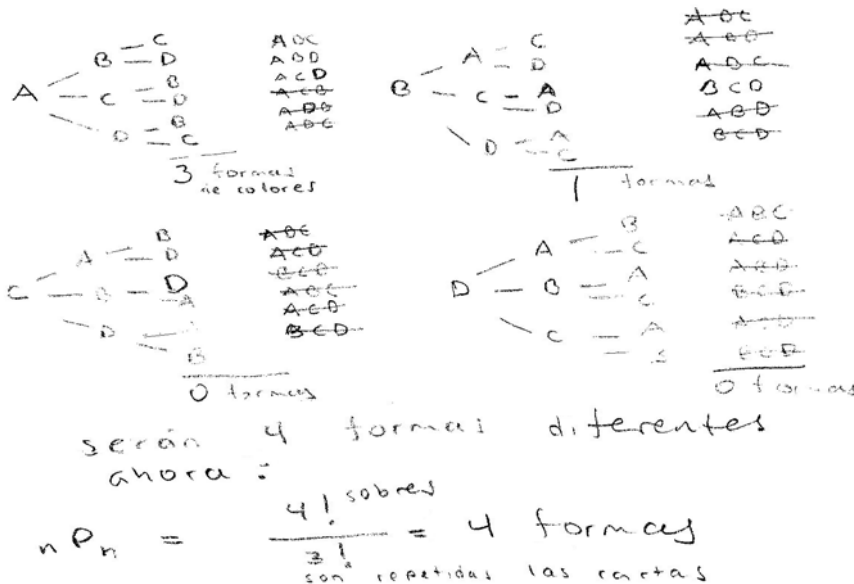 A
B
C
D
C
B
D
D
B
C
ABC
ABD
ACD
ACB
ADB
ADC
3 formas
de colores
B
A
C
D
C
A
D
D
A
C
ABC
BCD
ABD
BCD
1 formas
C
A
B
D
B
D
A
D
B
ACD
ACD
BCD
0 formas
D
A
B
C
B
A
C
C
A
ABC
ACD
BCD
0 formas
serán 4 formas diferentes
ahora :
nPn = 4! sobres / 3! = 4 formas
son repetidas las cartas